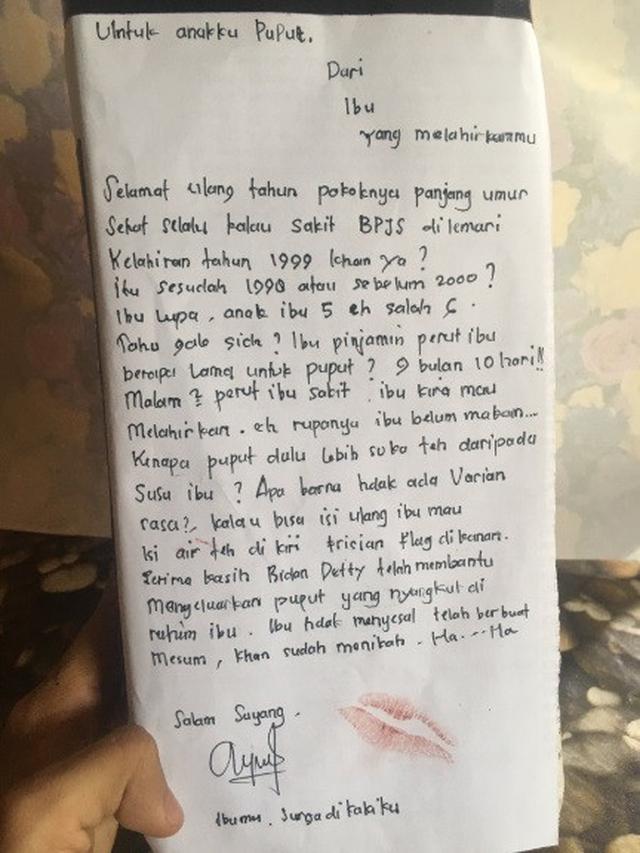 Untuk anakku Puput.
Dari
Ibu
yang melahirkanmu
Selamat ulang tahun pokoknya panjang umur
Sehat selalu kalau sakit BPJS dilemari
Kelahiran tahun 1999 khan ya?
itu sesudah 1990 atau sebelum 2000?
Ibu lupa, anak ibu 5 eh salah 6.
Tahu gak sich? Ibu pinjamin perut ibu
berapa lama untuk puput? 9 bulan 10 hari!!
Malam2 perut ibu sakit ibu kira mau
Melahirkan. eh rupanya ibu belum makan...
Kenapa puput dulu lebih suka teh daripada
Susu ibu? Apa karna tidak ada Varian
rasa?, kalau bisa isi ulang ibu mau
isi air teh di kiri frisian flag di kanan.
Terima kasih Bidan Detty telah membantu
mengeluarkan puput yang nyangkut di
rahim ibu. Ibu tidak menyesal telah berbuat
mesum, khan sudah menikah. Ha...Ha
Salam Sayang.
Ibumu. Surga dikakiku